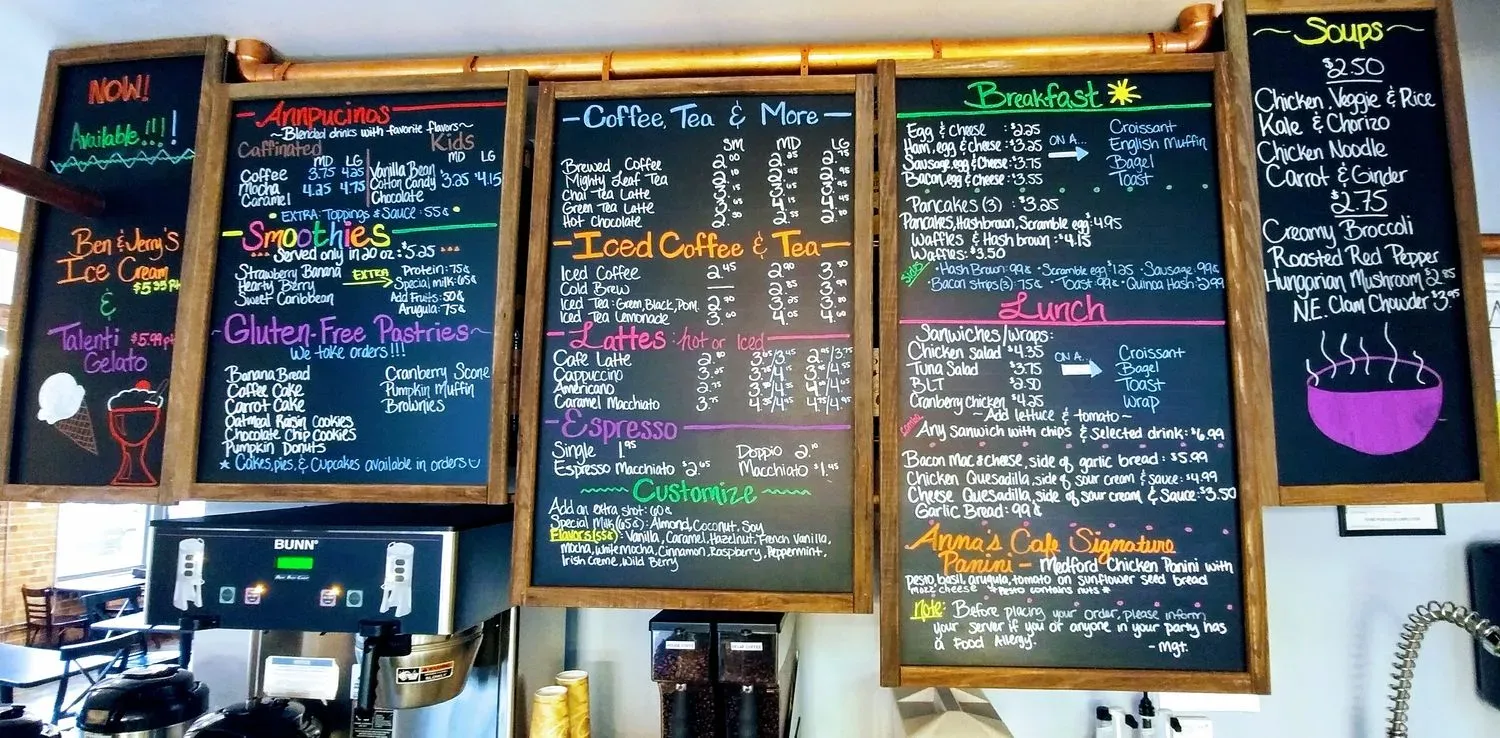 NOW!
Available!!!!
Ben & Jerry's
Ice Cream
&
Talenti $5.99
Gelato
Annpucinos
~Blended drinks with favorite flavors~
Caffinated
Kids
MD LG
MD LG
Coffee 3.75 4.25
Mocha 4.25 4.75
Caramel
Vanilla Bean
Cotton Candy 3.25 $4.15
Chocolate
EXTRA: Toppings & Sauce: 55¢
Smoothies
Served only in 20 oz: $5.25
Strawberry Banana
Hearty Berry
Sweet Caribbean
EXTRA
Protein: 75¢
Special milk: 65¢
Add Fruits: 50¢
Arugula: 75¢
~Gluten-Free Pastries~
We take orders!!!
Banana Bread
Coffee Cake
Carrot Cake
Oatmeal Raisin Cookies
Chocolate Chip Cookies
Pumpkin Donuts
Cranberry Scone
Pumpkin Muffin
Brownies
Cakes, pies, & Cupcakes available in orders
BUNN
-Coffee, Tea & More-
SM MD LG
Brewed Coffee
Mighty Leaf Tea
Chai Tea Latte
Green Tea Latte
Hot Chocolate
-Iced Coffee & Tea-
Iced Coffee 2.45
Cold Brew
Iced Tea: Green, Black, Pom.
Iced Tea Lemonade
-Lattes: hot or Iced
Cafe Latte
Cappuccino
Americano
Caramel Macchiato
-Espresso
Single 1.95 Doppio 2.10
Espresso Macchiato $2.65 Macchiato $1.45
Customize
Add an extra shot: 60¢
Special Milk (65¢): Almond, Coconut, Soy
Flavors (55¢): Vanilla, Caramel, Hazelnut, French Vanilla,
Mocha, White mocha, Cinnamon, Raspberry, Peppermint,
Irish Creme, Wild Berry
Breakfast
Egg & Cheese : $2.25
Ham, egg & cheese: $3.25
Sausage, egg & Cheese: $3.75
Bacon, egg & cheese: $3.55
ON A...
Croissant
English Muffin
Bagel
Toast
Pancakes (3) : $3.25
Pancakes, Hashbrown, Scramble egg: $4.95
Waffles & Hash brown: $4.15
Waffles: $3.50
Sides
•Hash Brown: 99¢ •Scramble egg $1.25 •Sausage: 99¢
•Bacon strips (3): 75¢ •Toast 99¢ •Quinoa Hash: 2.99
Lunch
Sanwiches/wraps:
Chicken Salad $4.35
Tuna Salad $3.75
BLT $2.50
Cranberry Chicken $4.25
ON A...
Croissant
Bagel
Toast
Wrap
~Add lettuce & tomato~
Combo
Any Sanwich with chips & Selected drink: $6.99
Bacon Mac & cheese, side of garlic bread: $5.99
Chicken Quesadilla, side of sour cream & sauce: $4.99
Cheese Quesadilla, side of sour cream & Sauce: $3.50
Garlic Bread: 99¢
Anna's Cafe Signature
Panini - Medford Chicken Panini with
pesto, basil, arugula, tomato on sunflower seed bread
mozz cheese *Pesto contains nuts*
Note: Before placing your order, please inform
your server if you or anyone in your party has
a Food Allergy.
-Mgt.
~Soups~
$2.50
Chicken, Veggie & Rice
Kale & Chorizo
Chicken Noodle
Carrot & Ginder
$2.75
Creamy Broccoli
Roasted Red Pepper
Hungarian Mushroom $2.85
N.E. Clam Chowder $3.95